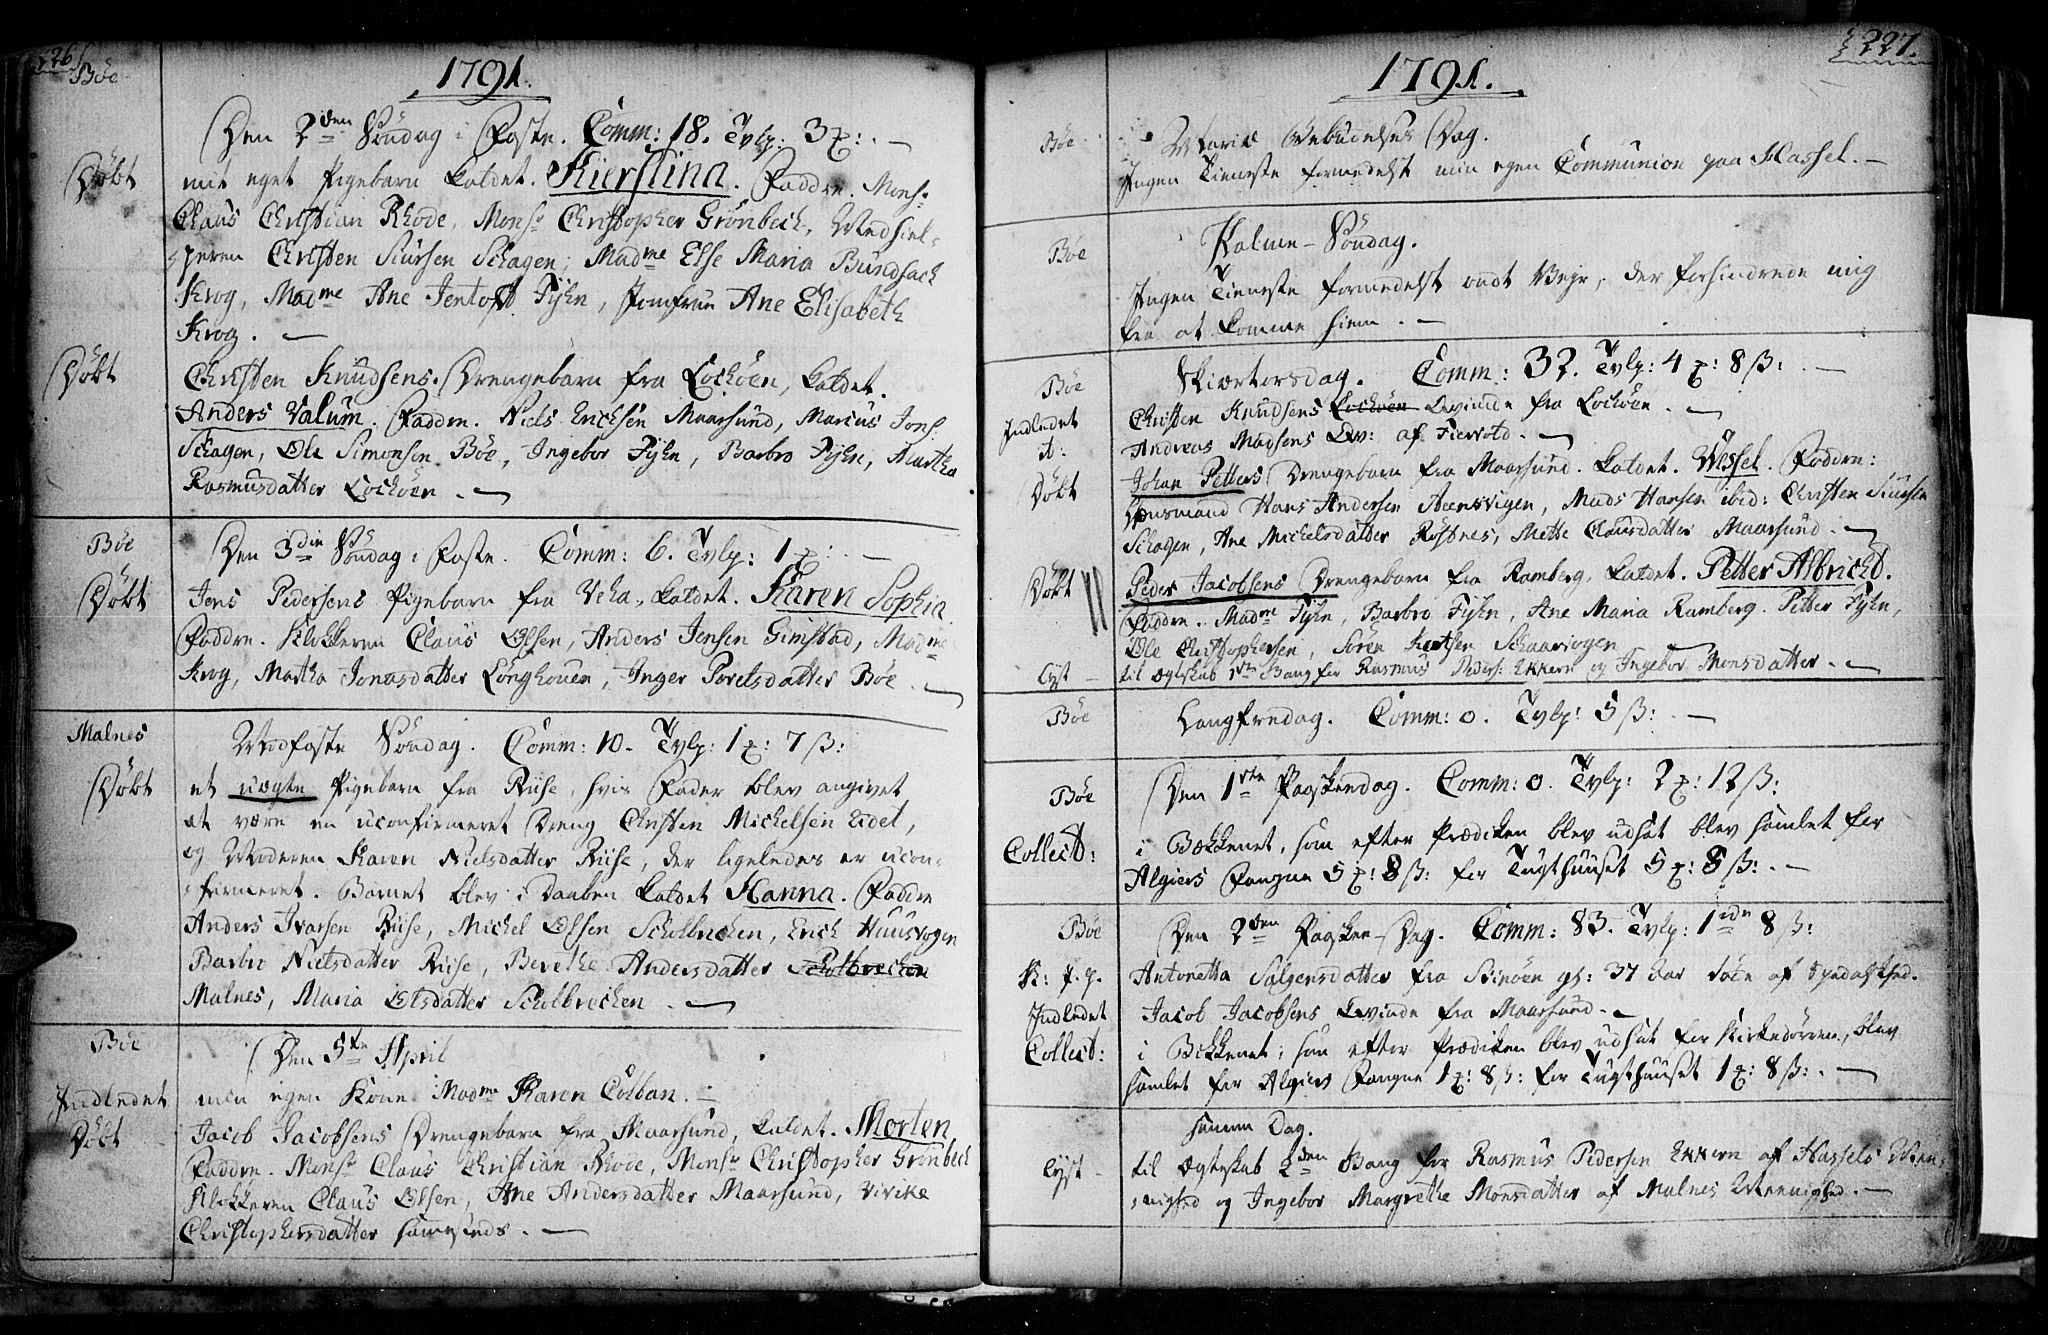 226
1791.
Bøe
Den 2den Søndag i Faste. Comm: 18. Tvlp: 3 x: .—
Døbt
mit eget Pigebarn kaldet. Kierstina. Faddre. Monsr
Claus Christian Rhode, Monsr Christopher Grønbech, Medhiel-
peren Christen Siursen Schagen; Madme Else Maria Bundsach
Krog, Madme Ane Jentoft Fyhn, Jomfrue Ane Elisabeth
Krog. —
Døbt
Christen Knudsens Drengebarn fra Lochøen, kaldet.
Anders Valum. Faddre. Niels Ericksen Maarsund, Marcus Jons:
Schagen, Ole Simonsen Bøe, Ingebor Fyhn, Barbro Fyhn, Martha
Rasmusdatter Lochøen. —
Bøe
Den 3die Søndag i Faste. Comm: 6. Tvlp: 1 x: —
Døbt
Jens Pedersens Pigebarn fra Veha, kaldet. Karen Sophia
Faddre. Klokkeren Claus Olsen, Anders Jensen Gimstad, Madme
Krog, Martha Jonasdatter Lønghouen, Inger Poretsdatter Bøe. —
Malnes
Midfaste Søndag. Comm: 10. Tvlp: 1 x: 7 ß:
Døbt
et uægte Pigebarn fra Riise, hvis Fader blev angivet
at være en uconfirmeret Dreng Christen Michelsen Eidet,
og Moderen Karen Nielsdatter Riise, der ligeledes er ucon-
firmeret. Barnet blev i Daaben kaldet Hanna. Faddre
Anders Ivarsen Riise, Michel Olsen Scholbrechen, Erich Huusvogen
Barbro Nielsdatter Riise, Berethe Andersdatter Scholbrechen
Malnes, Maria Olsdatter Scholbrechen. —
Bøe
Den 5te April
Indledet
min egen Kone Madme Karen Colban. —
Døbt
Jacob Jacobsens Drengebarn fra Maarsund, kaldet. Morten
Faddre. Monsr Claus Christian Rhode, Monsr Christopher Grønbech
Klokkeren Claus Olsen, Ane Andersdatter Maarsund, Vivike
Christophersdatter samesteds. —
227.
1791.
Bøe
Mariæ Bebudelses Dag.
Ingen Tieneste formedelst min egen Communion paa Hassel. —
Bøe
Palme-Søndag.
Ingen Tieneste formedelst ondt Veyr, der forhindrede mig
fra at komme hiem. —
Bøe
Skiærtorsdag. Comm: 32. Tvlp: 4 x: 8 ß: —
Indledet
Christen Knudsens Lochøen Qvinde fra Lochøen. —
it:
Andreas Madsens Qv: af Fiervold. —
Døbt
Johan Petters Drengebarn fra Maarsund. kaldet. Wessel. Faddre:
Lensmand Hans Andersen Steensvigen, Mads Hansen ibid: Christen Siursen
Schagen, Ane Michelsdatter Røstnes, Mette Clausdatter Maarsund. —
Døbt
Peder Jacobsens Drengebarn fra Ramberg, kaldet. Petter Albricht.
Faddre. Madme Fyhn, Barbro Fyhn, Ane Maria Ramberg. Petter Fyhn,
Ole Christophersen, Søren Siursen Schaarvogen
Lyst —
til Egteskab 1ste Gang for Rasmus Peders: Ekkern og Ingebor Monsdatter. —
Bøe
Langfredag. Comm: 0. Tvlp: 5 ß: —
Bøe
Den 1ste Paaskedag. Comm: 0. Tvlp: 2 x: 12 ß:
Collect:
i Bækkenet, som efter Prædiken blev udsat blev samlet for
Algiers Fangne 5 x: 8 ß: for Tugthuuset 5 x: 8 ß: . —
Bøe
Den 2den Paaske-Dag. Comm: 83. Tvlp: 1 8 ß:
K: f: p.
Antonetta Salgensdatter fra Skinøen gl: 37 Aar døde af Spedalskhed.
Indledet
Jacob Jacobsens Qvinde fra Maarsund. —
Collect:
i Bekkenet, som efter Prædiken blev udsat for Kirkedørren, blev
samlet for Algiers Fangne 1 x: 8 ß: for Tugthuuset 1 x: 8 ß: . —
samme Dag.
Lyst —
til Egteskab 2den Gang for Rasmus Pedersen Ekkern af Hassels Men-
nighed og Ingebor Margrethe Monsdatter af Malnes Mennighed. —